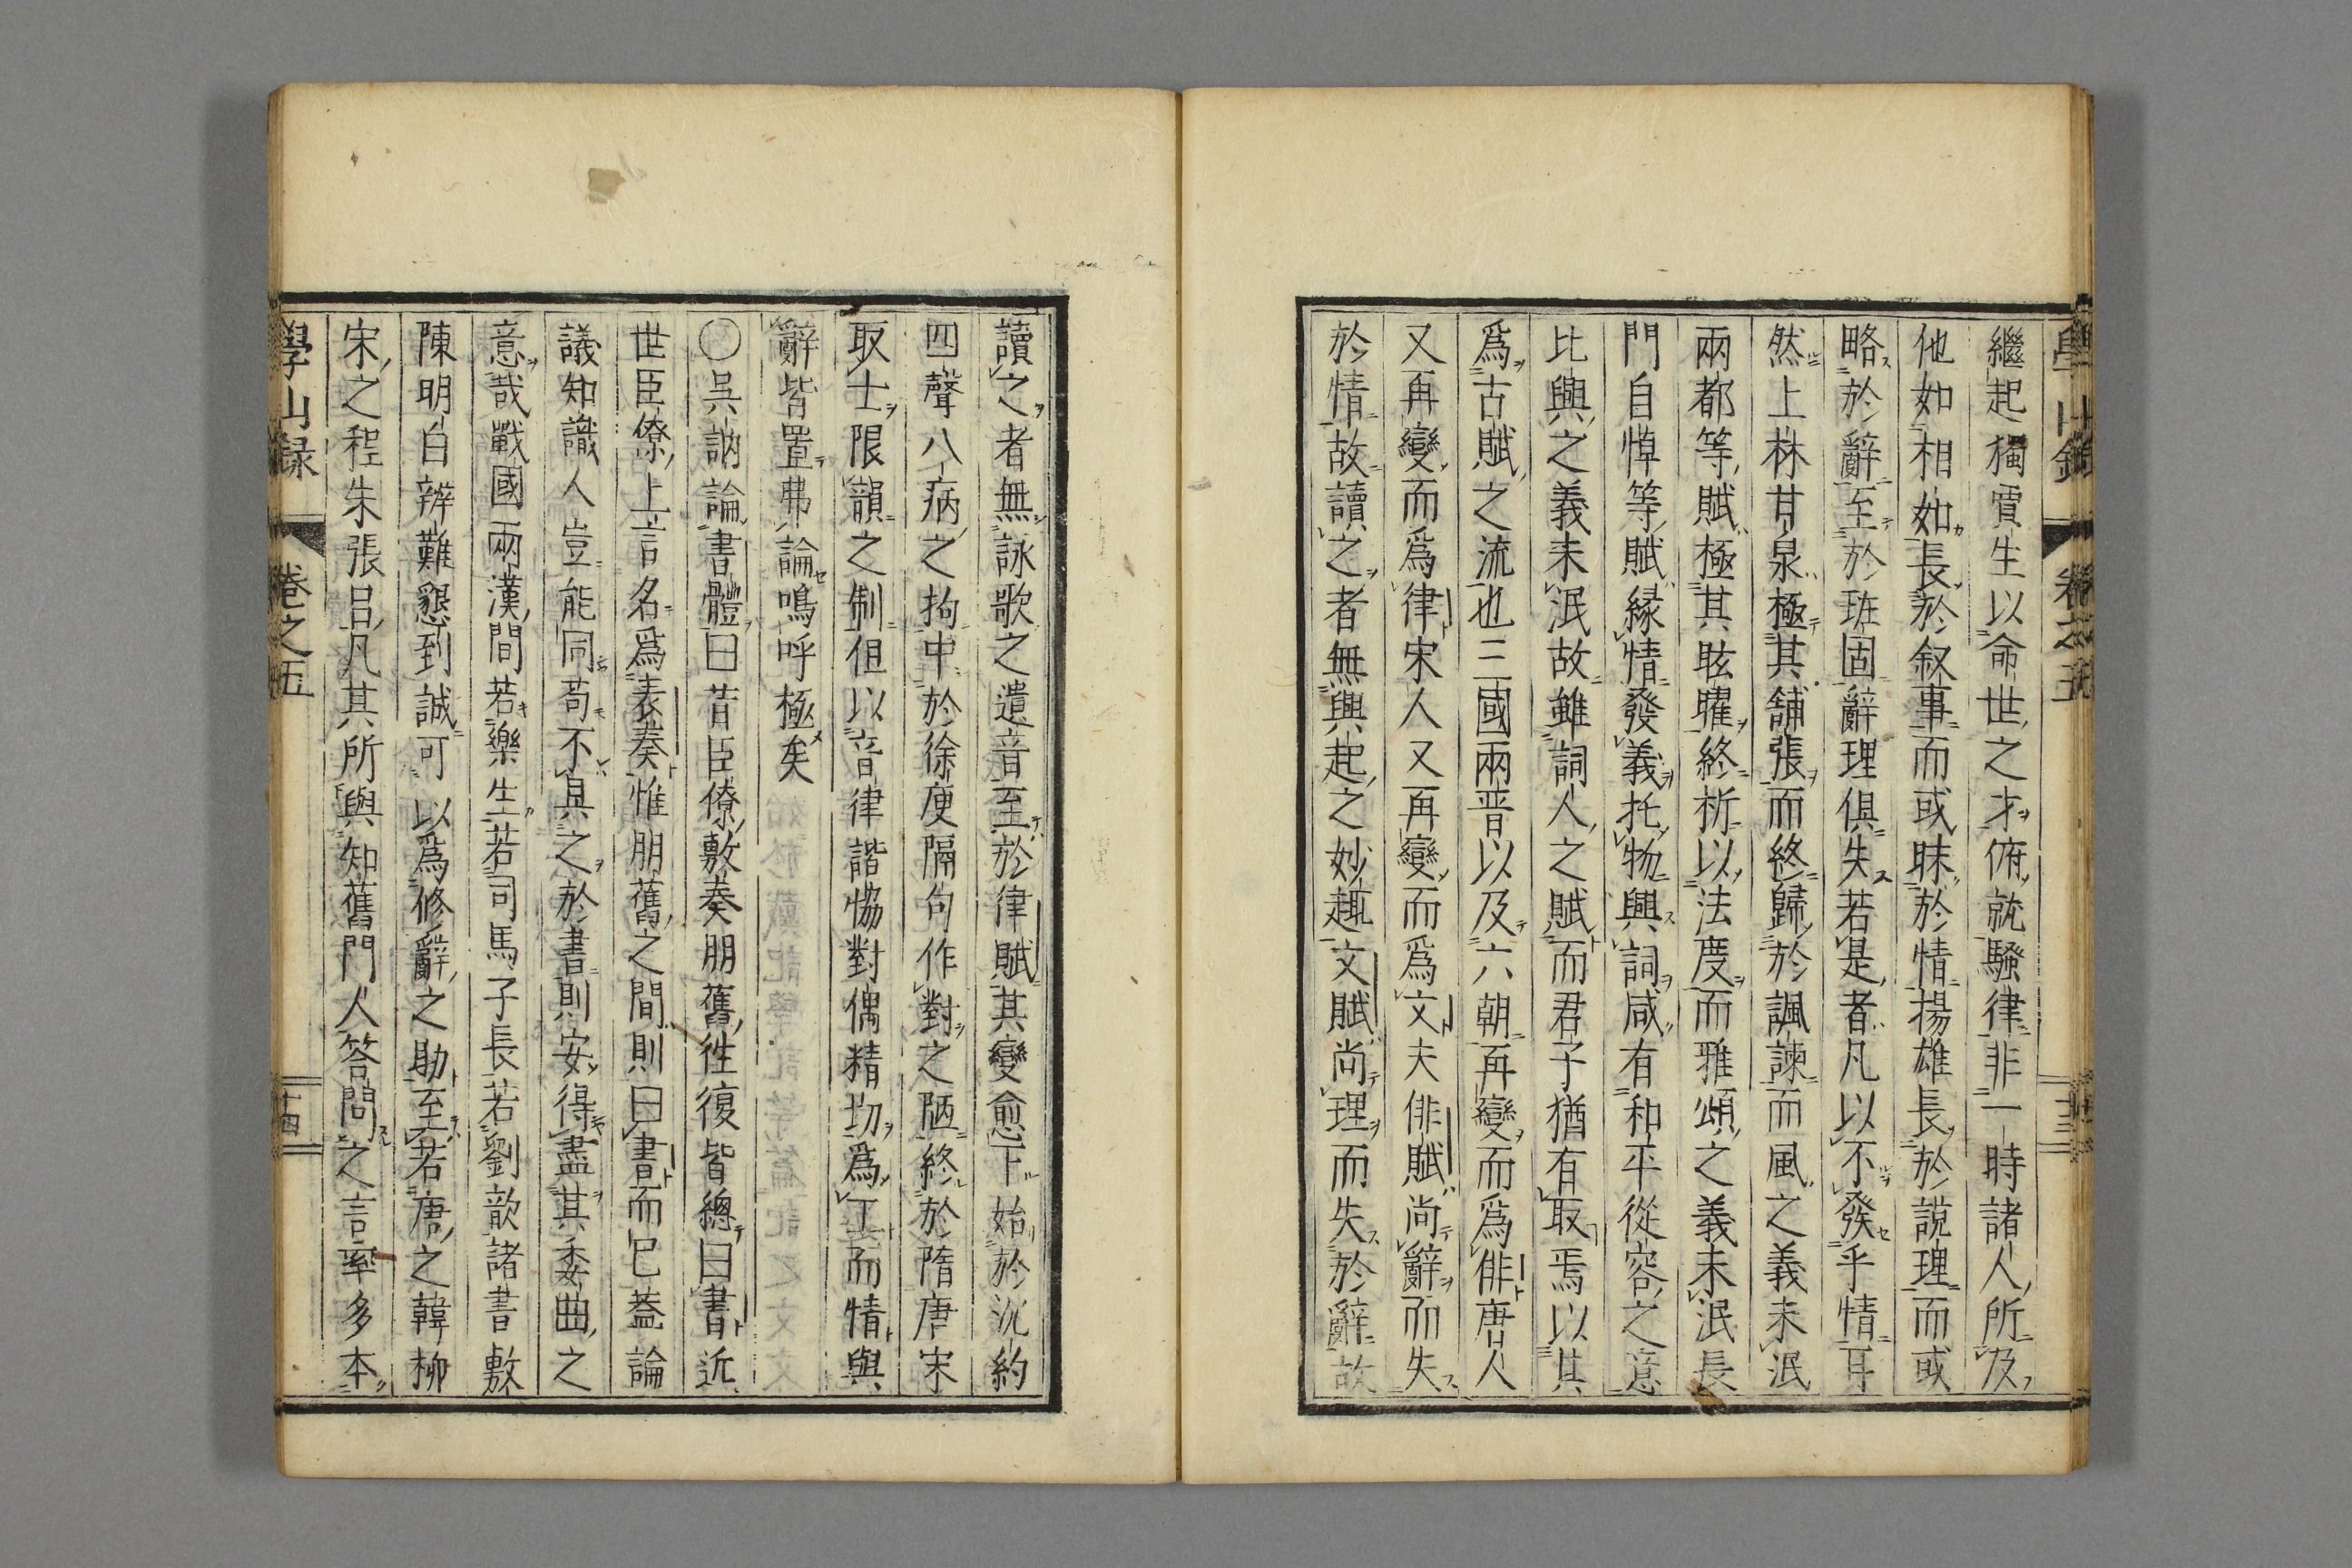 繼起獨賈生以命世之才俯就騷律非一時諸人所及
他如相如長於叙事而或昧於情揚雄長於說理而或
略於辭至於班固辭理俱失若是者凡以不發乎情耳
然上林甘泉極其舖張而終歸於諷諫而風之義未泯
兩都等賦極其眩曜終折以法度而雅頌之義未泯長
門自悼等賦緣情發義托物興詞咸有和平從容之意
比興之義未泯故雖詞人之賦而君子猶有取焉以其
爲古賦之流也三國兩晋以及六朝再變而爲俳唐人
又再變而爲律宋人又再變而爲文夫俳賦尚辭而失
於情故讀之者無興起之妙趣文賦尚理而失於辭故
讀之者無詠歌之遺音至於律賦其變愈下始於沈約
四聲八病之拘中於徐庾隔句作對之陋終於隋唐宋
取士限韻之制但以音律諧恊對偶精切爲工而情與
辭皆置弗論嗚呼極矣
〇吳訥論書體曰昔臣僚敷奏朋舊徃復皆總曰書近
世臣僚上言名爲表奏惟朋舊之間則曰書而已葢論
議知識人豈能同苟不具之於書則安得盡其委曲之
意哉戰國兩漢間若樂生若司馬子長若劉歆諸書敷
陳明白辨難懇到誠可以爲修辭之助至若唐之韓柳
宋之程朱張呂凡其所與知舊門人答問之言率多本
學山録 卷之五 十四